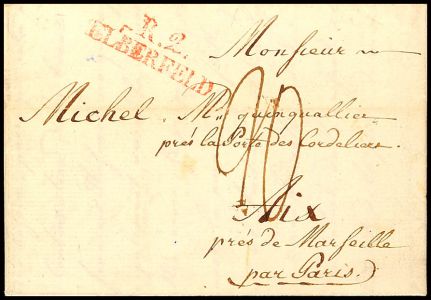 R. 2.
ELBERFELD
Monsieur
Michel, Md quinquallier
prés la Porte des Cordeliers.
Aix
prés de Marseille
par Paris.